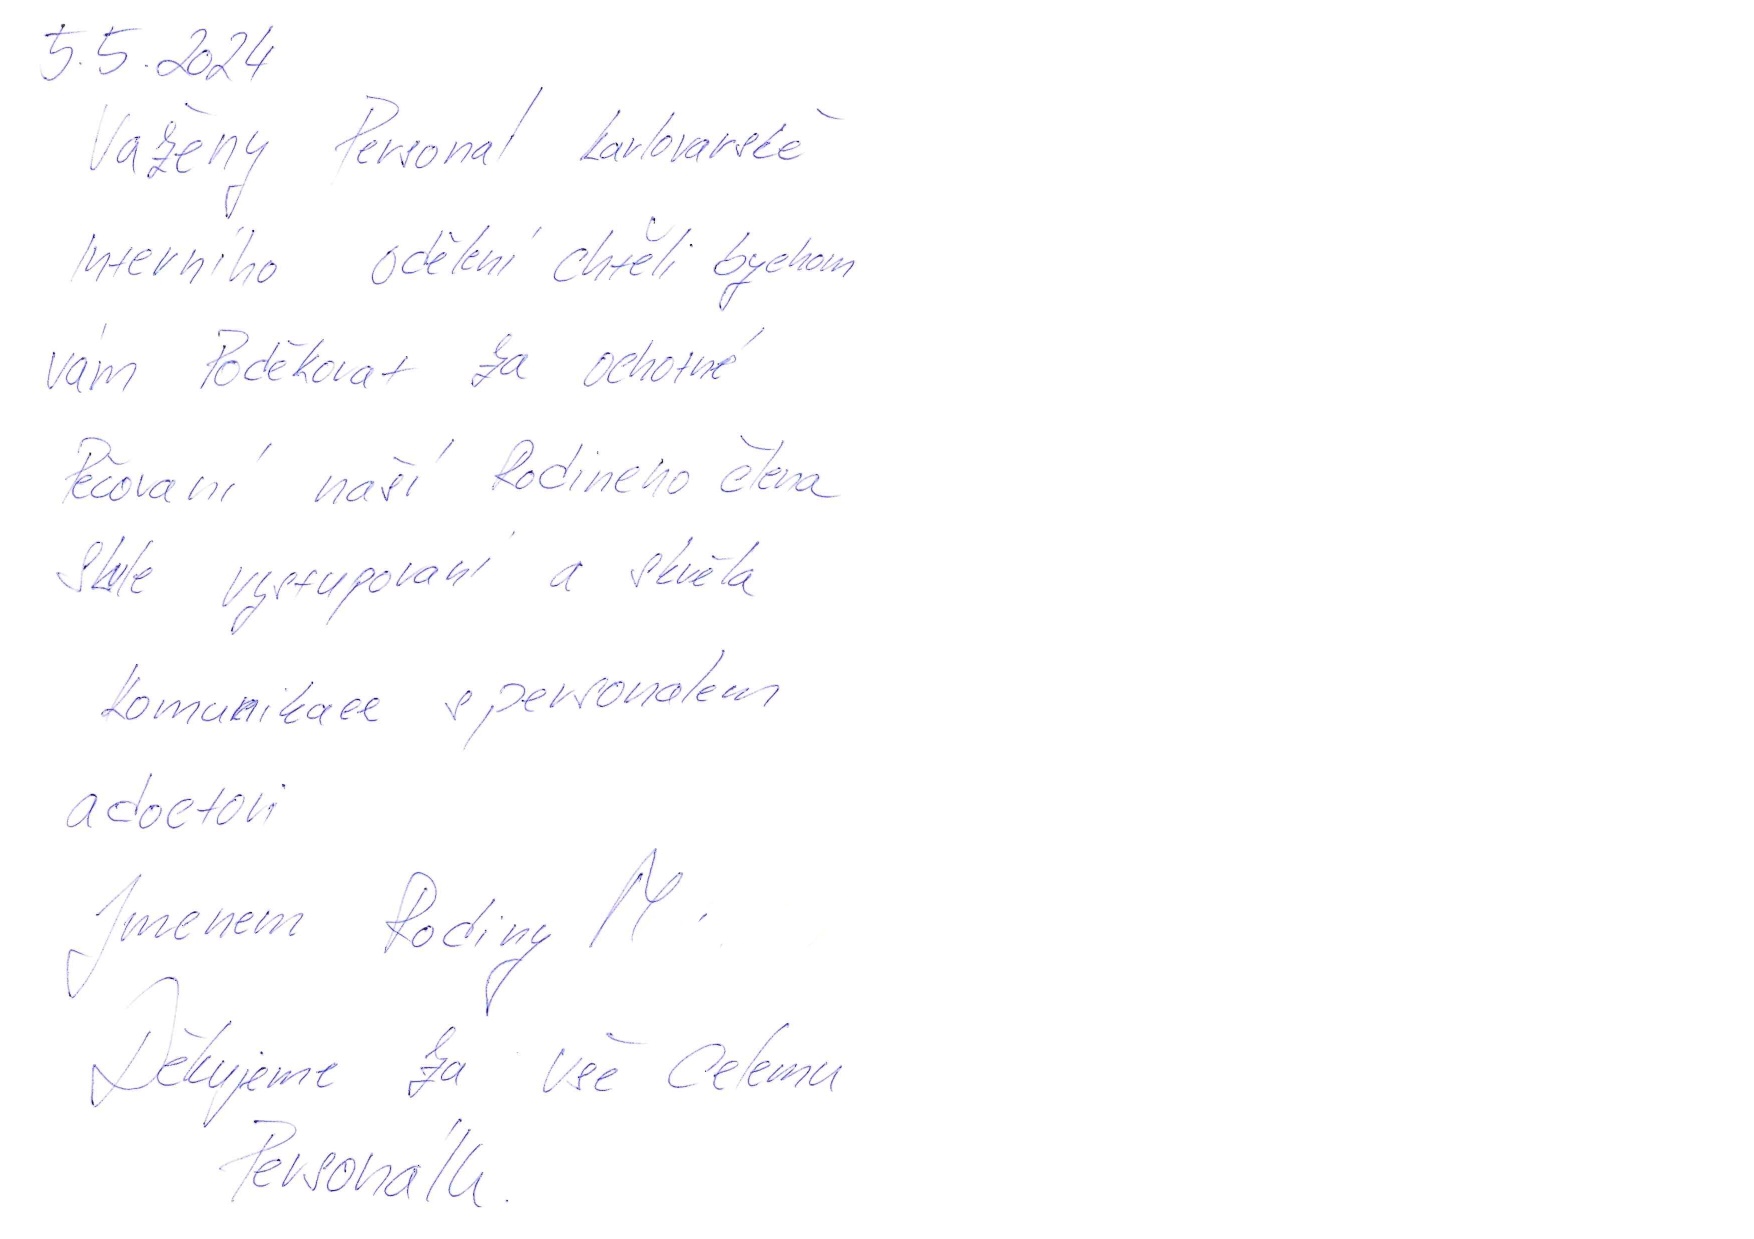 5.5.2024
Važeny Personal karlovarské
Interního odělení chtěli bychom
vám Poděkovat za ochotné
Pečovaní naší Rodineho člena
vystupovaní a skvěla
komunikace s personalem
a doctori
Jmenem Rodiny M.
Děkujeme za vše Celemu
Personálu.